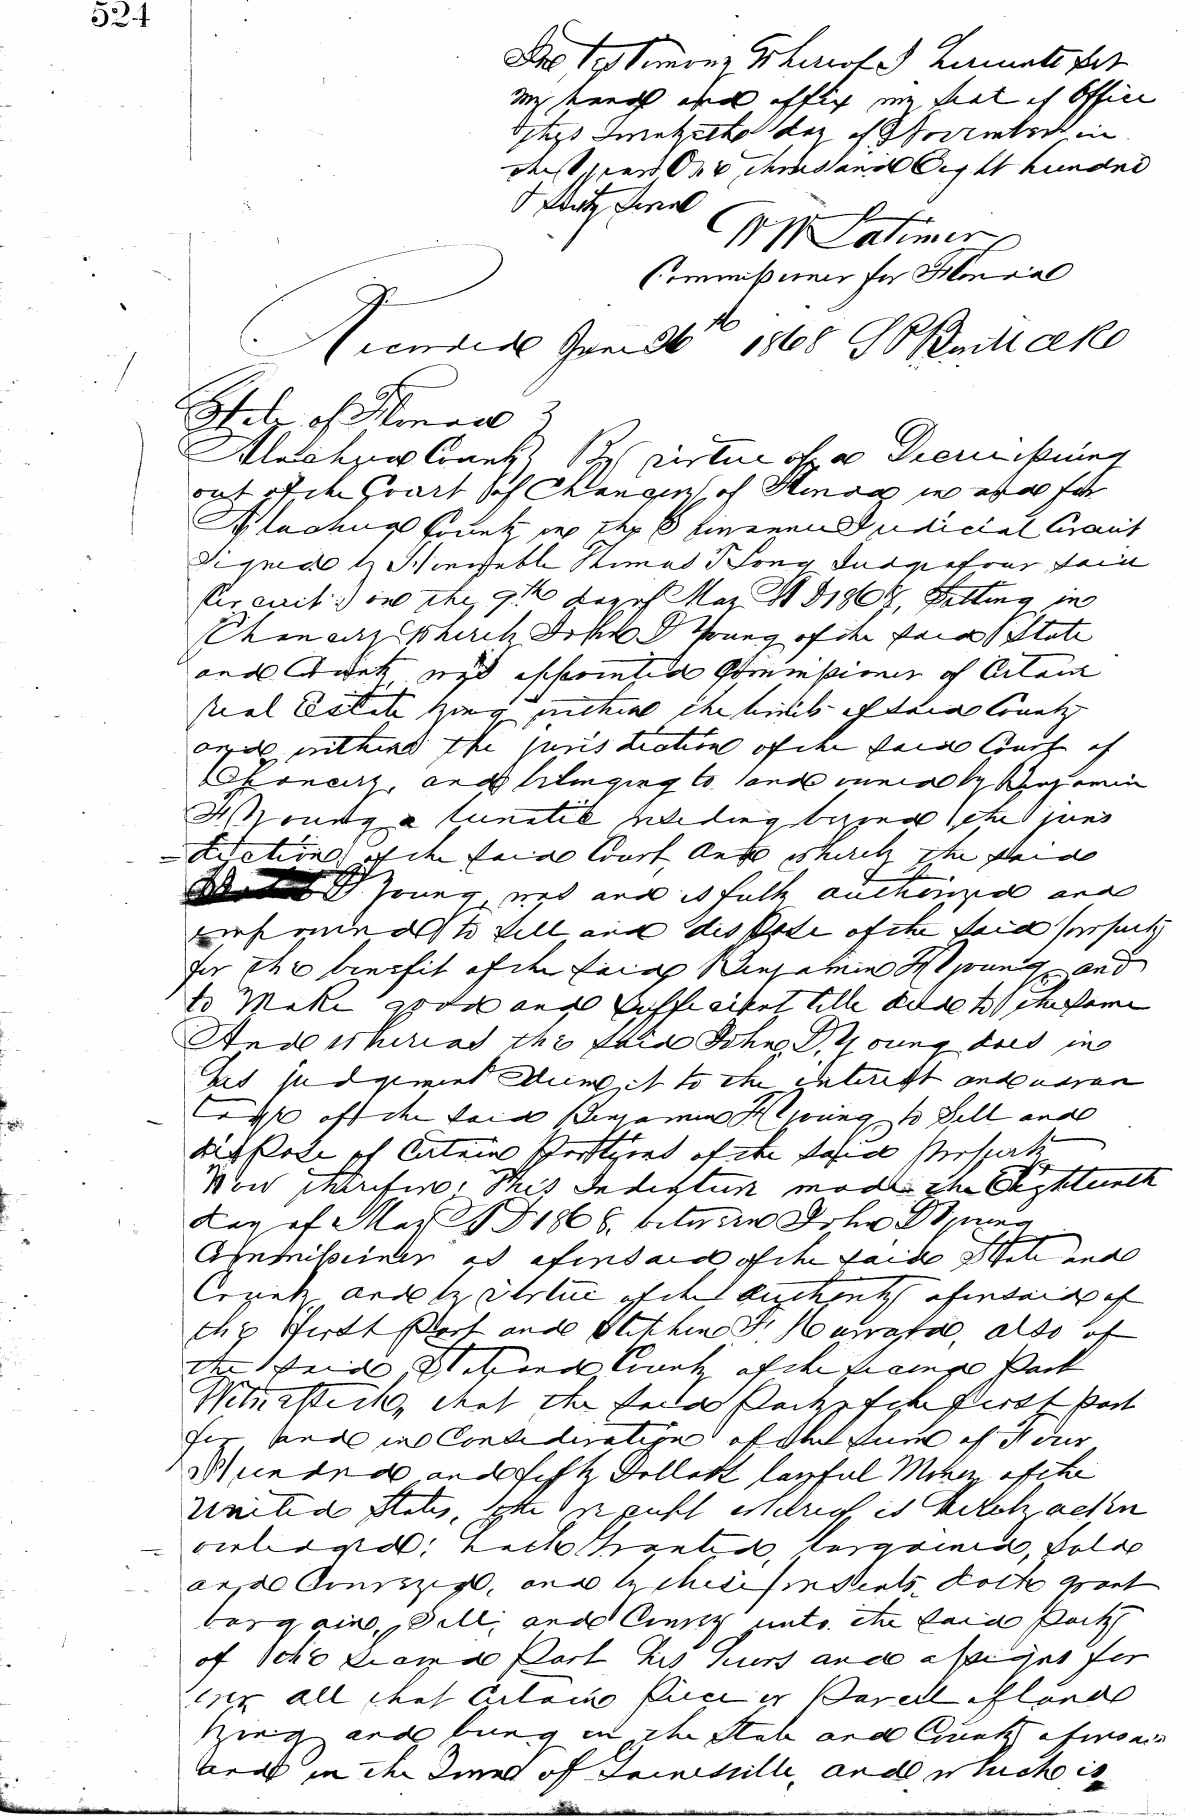 524
In testimony Whereof I hereunto set
my hand and affix my seal of Office
this Twentyeth day of November in
the year One thousand Eight hundred
& sixty seven
W W Latimer
Commissioner for Florida
Recorded June 26th 1868 S P Clk
State of Florida }
Alachua County } By virtue of a Decree issuing
out of the Court of Chancery of Florida in and for
Alachua County in the Suwannee Judicial Circuit
signed by Honorable Thomas T Long Judge of our said
Circuit on the 9th day of May A D 1868, Sitting in
Chancery Whereby John D Young of the said State
and County was appointed Commissioner of Certain
real Estate lying within the limits of said County
and within the jurisdiction of the said Court of
Chancery, and belonging to and owned by Benjamin
F Young a lunatic residing beyond the juris
diction of the said Court, And whereby the said
D Young, was and is fully authorized and
empowered to sell and dispose of the said property
for the benefit of the said Benjamin F Young and
to Make good and sufficient title deed to the same
And whereas the said John D. Young does in
his judgement deem it to the interest and advan
tage of the said Benjamin F Young to Sell and
dispose of Certain portions of the said property
Now therefore; This Indenture made the Eighteenth
day of May A D 1868, between John D Young
Commissioner as aforesaid of the said State and
County and by virtue of the authority aforesaid of
the first Part and Stephen F. also of
the said State and County of the second Part
Witnesseth, that the said Party of the first part
for and in Consideration of the sum of Four
Hundred and fifty Dollars lawful Money of the
United States, the receipt whereof is hereby ackn
owledged: hath Granted, bargained, sold
and Conveyed, and by these presents, doth grant
bargain, Sell, and Convey unto the said Party
of the second Part his heirs and assigns for
ever all that Certain Piece or Parcel of land
lying and being in the State and County aforesaid
and in the Town of Gainesville, and which is